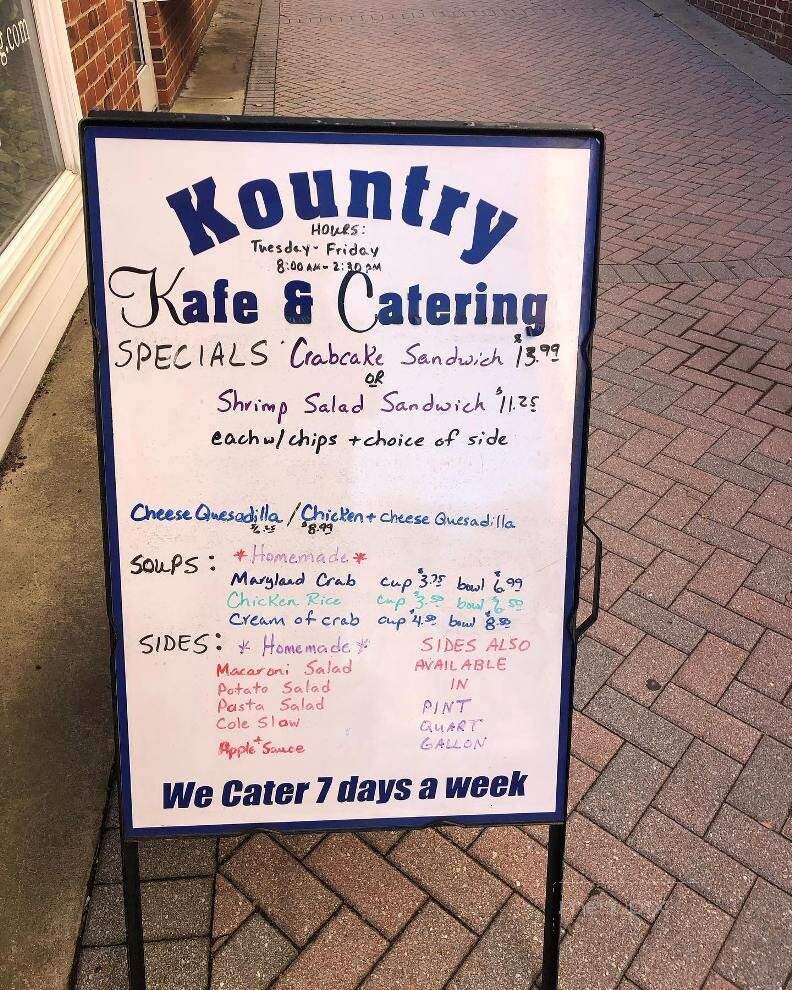 g.com
Kountry
HOURS:
Tuesday - Friday
8:00 AM - 2:30 PM
Kafe & Catering
SPECIALS Crabcake Sandwich $13.99
OR
Shrimp Salad Sandwich $11.25
each w/ chips + choice of side
Cheese Quesadilla / Chicken + cheese Quesadilla
$8.99
SOUPS: *Homemade*
Maryland Crab cup $3.75 bowl $6.99
Chicken Rice cup $3.50 bowl $6.50
Cream of crab cup $4.50 bowl $8.50
SIDES: * Homemade * SIDES ALSO
Macaroni Salad AVAILABLE
Potato Salad IN
Pasta Salad PINT
Cole Slaw QUART
Apple Sauce GALLON
We Cater 7 days a week